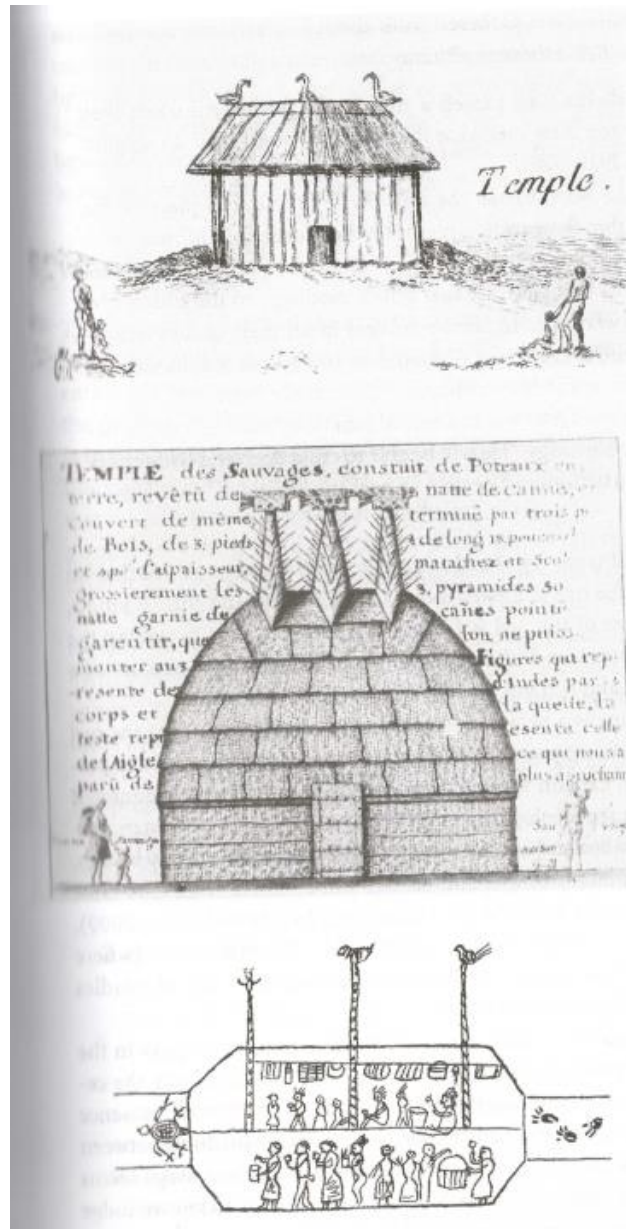 Temple.
TEMPLE des Sauvages, constuit de Poteaux en
terre, revêtû de natte de Cannes, et
Couvert de même, terminé par trois p
de Bois, de 3. pieds de long 18. pouces
et d'aipaisseur, matachez et Scul
grossierement les 3. pyramides so
natte garnie de cañes pointü
garentir, que lon ne puiss
monter aux Figures qui rep
resente de d'indes par le
corps et la queüe, la
teste repr esente celle
de l'Aigle, ce qui nous a
parû de plus aprochant